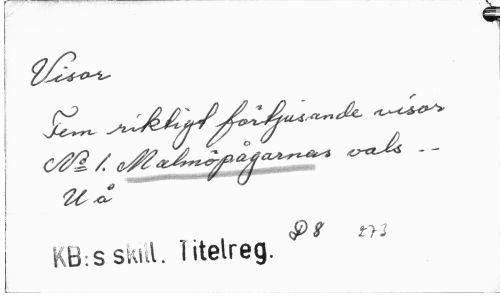 Visor
Fem riktigt förtjusande visor
No 1. Malmöpågarnas vals --
U å
D 8 273
KB:s skill. Titelreg.